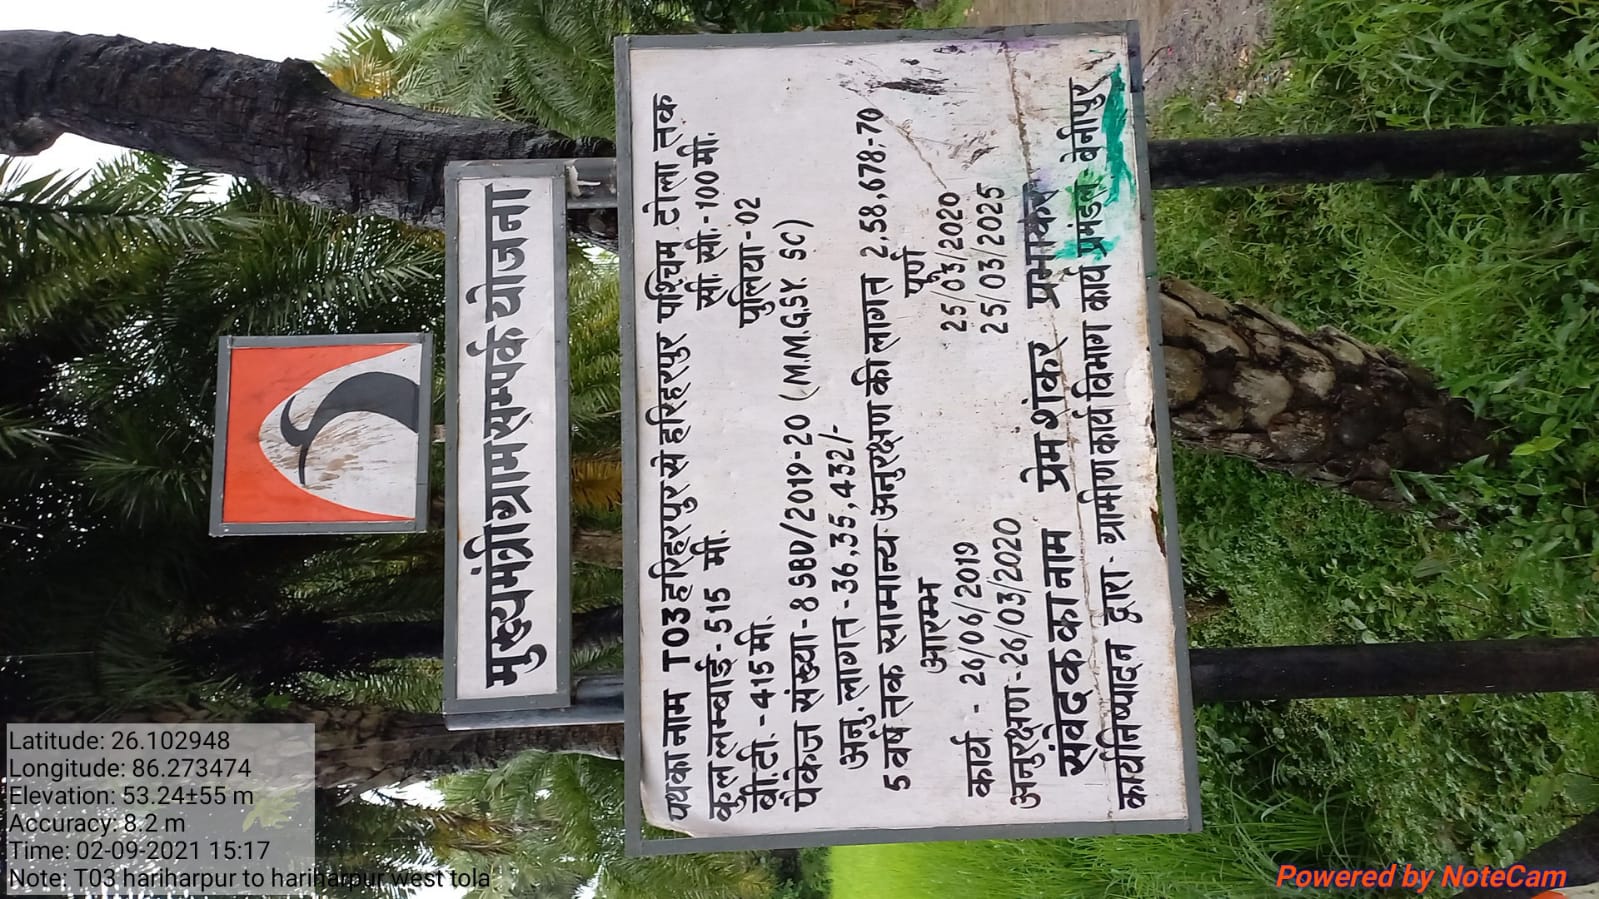 मुख्यमंत्री ग्राम सम्पर्क योजना
पथ का नाम T03 हरिहरपुर से हरिहरपुर पश्चिम टोला तक
कुल लम्बाई - 515 मी. सी. सी. - 100 मी.
बी.टी. - 415 मी. पुलिया - 02
पैकेज संख्या - 8 SBD/2019-20 (M.M.G.SY. SC)
अनु. लागत - 36,35,432/-
5 वर्ष तक सामान्य अनुरक्षण की लागत 2,58,678.70
आरम्भ पूर्ण
कार्य - 26/06/2019 25/03/2020
अनुरक्षण - 26/03/2020 25/03/2025
संवेदक का नाम प्रेम शंकर प्रभाकर
कार्यनिष्पादन द्वारा - ग्रामीण कार्य विभाग कार्य प्रमंडल - बेनीपुर
Latitude: 26.102948
Longitude: 86.273474
Elevation: 53.24±55 m
Accuracy: 8.2 m
Time: 02-09-2021 15:17
Note: T03 hariharpur to hariharpur west tola
Powered by NoteCam